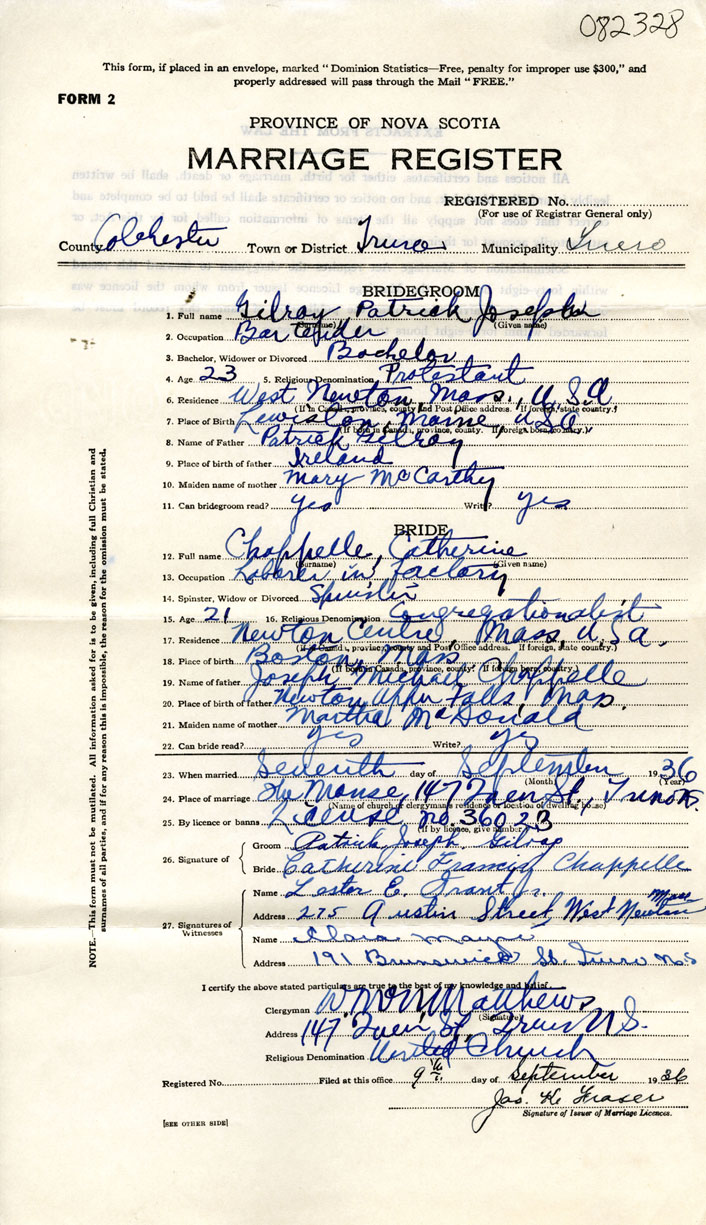 082328
This form, if placed in an envelope, marked "Dominion Statistics—Free, penalty for improper use $300," and
properly addressed will pass through the Mail "FREE."
FORM 2
PROVINCE OF NOVA SCOTIA
MARRIAGE REGISTER
REGISTERED No.
(For use of Registrar General only)
County Colchester Town or District Truro Municipality Truro
BRIDEGROOM
1. Full name Gilroy Patrick Joseph
(Surname) (Given name)
2. Occupation Bartender
3. Bachelor, Widower or Divorced Bachelor
4. Age 23 5. Religious Denomination Protestant
6. Residence West Newton, Mass., U.S.A
(If in Canada, province, county and Post Office address. If foreign, state country.)
7. Place of Birth Lewiston, Maine, USA
(If born in Canada, province, county. If foreign born, country.)
8. Name of Father Patrick Gilroy
9. Place of birth of father Ireland
10. Maiden name of mother Mary McCarthy
11. Can bridegroom read? yes Write? yes
BRIDE
12. Full name Chappelle, Catherine
(Surname) (Given name)
13. Occupation Laborer in factory
14. Spinster, Widow or Divorced Spinster
15. Age 21 16. Religious Denomination Congregationalist
17. Residence Newton Centre, Mass, U.S.A.
(If in Canada, province, county and Post Office address. If foreign, state country.)
18. Place of birth Boston, Mass
(If born in Canada, province, county. If foreign born, country.)
19. Name of father Joseph Michael Chappelle
20. Place of birth of father Newton Upper Falls, Mas.
21. Maiden name of mother Martha McDonald
22. Can bride read? yes Write? yes
23. When married Seventh day of September 1936
(Month) (Year)
24. Place of marriage The Manse, 147 Queen St., Truro N.S.
(Name of church or clergyman's residence or location of dwelling house)
25. By licence or banns License no. 36023
(If by licence, give number)
26. Signature of
Groom Patrick Joseph Gilroy
Bride Catherine Francis Chappelle
27. Signatures of Witnesses
Name Lester E. Grant Jr.
Address 275 Austin Street, West Newton Mass
Name Clara
Address 191 Brunswick St. Truro N.S
I certify the above stated particulars are true to the best of my knowledge and belief.
Clergyman Matthews
(Signature)
Address 147 Queen St, Truro N.S.
Religious Denomination United Church
Registered No. Filed at this office 9th day of September 1936
Jas. K. Fraser
Signature of Issuer of Marriage Licences.
[SEE OTHER SIDE]
NOTE.—This form must not be mutilated. All information asked for is to be given, including full Christian and
surnames of all parties, and if for any reason this is impossible, the reason for the omission must be stated.